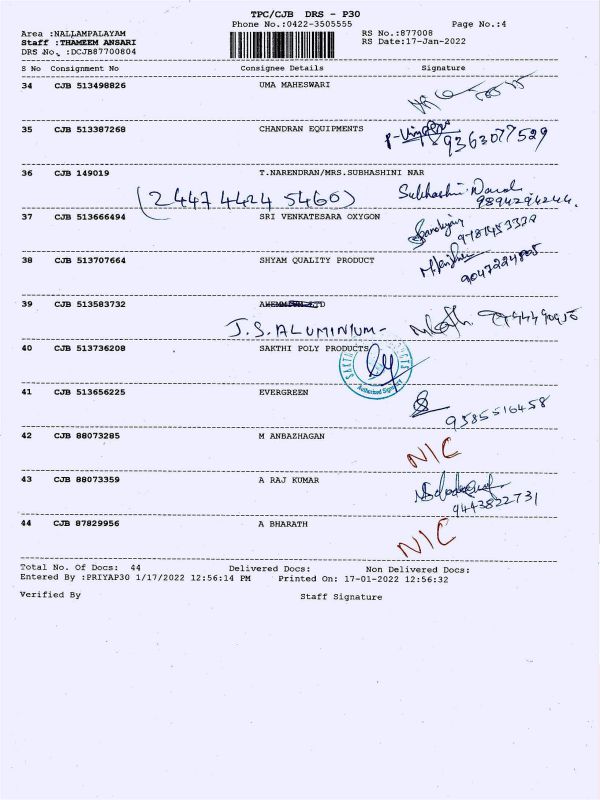 TPC/CJB DRS - P30
Phone No.:0422-3505555 Page No.:4
Area :NALLAMPALAYAM RS No.:877008
Staff :THAMEEM ANSARI RS Date:17-Jan-2022
DRS No. :DCJB87700804
S No Consignment No Consignee Details Signature
34 CJB 513498826 UMA MAHESWARI
35 CJB 513387268 CHANDRAN EQUIPMENTS
9363077529
36 CJB 149019 T.NARENDRAN/MRS.SUBHASHINI NAR
(2447 4424 5460) Subhashni
9894294244.
37 CJB 513666494 SRI VENKATESARA OXYGON
38 CJB 513707664 SHYAM QUALITY PRODUCT
39 CJB 513583732
J.S.ALUMINIUM-
40 CJB 513736208 SAKTHI POLY PRODUCTS
Authorised
41 CJB 513656225 EVERGREEN
9585516458
42 CJB 88073285 M ANBAZHAGAN
N/C
43 CJB 88073359 A RAJ KUMAR
9443822731
44 CJB 87829956 A BHARATH
N/C
Total No. Of Docs: 44 Delivered Docs: Non Delivered Docs:
Entered By :PRIYAP30 1/17/2022 12:56:14 PM Printed On: 17-01-2022 12:56:32
Verified By Staff Signature